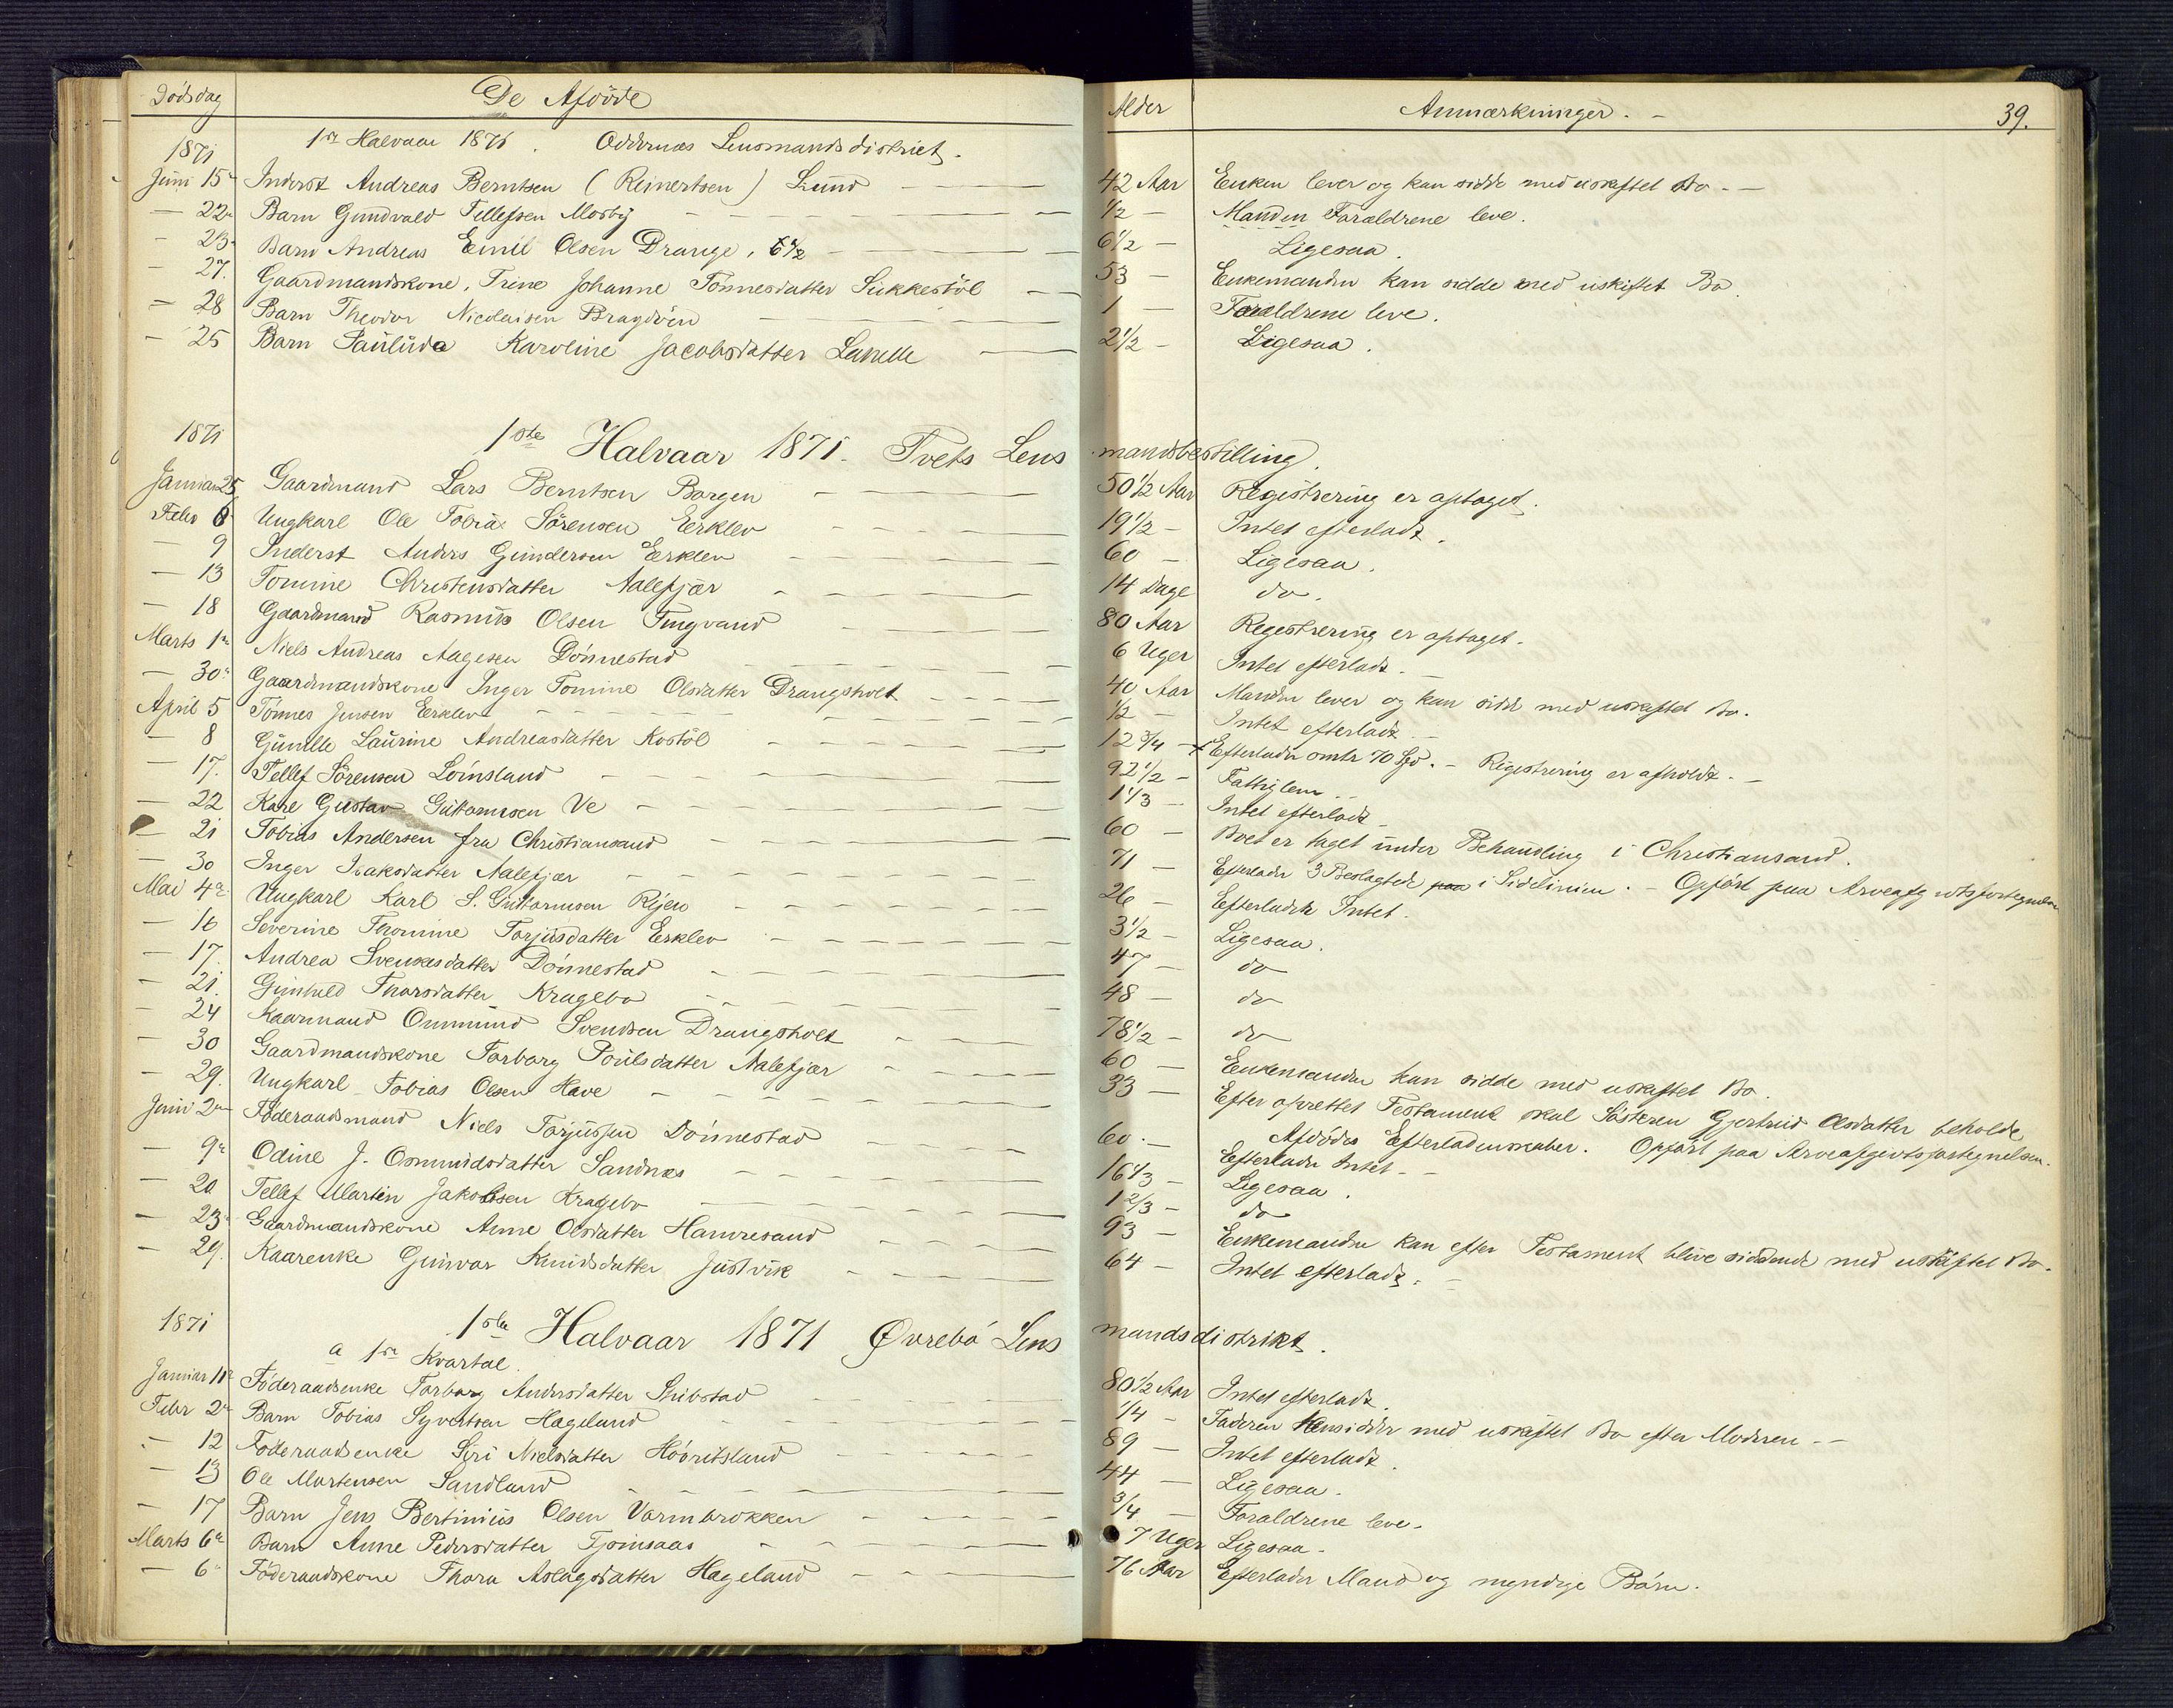 Dödsdag De Afdöde Alder Anmærkninger. - 39.
1871 1ste Halvaar 1871. Oddernæs Lensmandsdistrict.
Juni 15de Inderst Andreas Berntsen (Reinertsen) Lund 42 Aar Enken lever og kan sidde med uskiftet Bo. -
- 22de Barn Gundvald Tellefsen Mosby 1/2 - Manden Forældrene leve.
- 23de Barn Andreas Emil Olsen Drange, 6 1/2 6 1/2 - Ligesaa.
- 27. Gaardmandskone, Trine Johanne Tönnesdatter Sukkestöl 53 - Enkemanden kan sidde med uskiftet Bo.
- 28 Barn Theodor Nicolaisen Bragdöen 1 - Forældrene leve.
- 25 Barn Karoline Jacobsdatter 2 1/2 - Ligesaa.
1871 1ste Halvaar 1871. Tvets Lensmandsbestilling.
Januar 25 Gaardmand Lars Berntsen Borgen 50 1/2 Aar Registrering er optaget.
Febr 8 Ungkarl Ole Tobias Sörensen Eerklev 19 1/2 - Intet efterladt.
- 9 Inderst Anders Gundersen Eerklev 60 - Ligesaa.
- 13 Tomine Christensdatter Aalefjær 14 Dage do.
- 18 Gaardmand Rasmus Olsen Tingvand 80 Aar Registrering er optaget.
Marts 1ste Niels Andreas Aagesen Dönnestad 6 Uger Intet efterladt.
- 30te Gaardmandskone Inger Tomine Olsdatter Drangsholt 40 Aar Manden lever og kan sidde med uskiftet Bo.
April 5 Tönnes Jensen Eerklev 1/2 - Intet efterladt.
- 8 Gunille Laurine Andreasdatter Kostöl 12 3/4 - Efterlader omtr 70 Spd. - Registrering er afholdt. -
- 17. Tellef Sörensen Löinsland 92 1/2 - Fattiglem.
- 22 Karl Gustav Guttormsen Ve 1 1/3 - Intet efterladt
- 21 Tobias Andersen fra Christiansand 60 - Boet er taget under Behandling i Christiansand.
- 30 Inger Isaksdatter Aalefjær 71 - Efterlader 3 Beslægtede paa i Sidelinien. - Opfört paa Arveafgiftsfortegnelsen
Mai 4de Ungkarl Karl S. Guttormsen Rijen 26 - Efterladte Intet.
- 16 Severine Thomine Torjusdatter Eerklev 3 1/2 - Ligesaa.
- 17. Andrea Svensdatter Dönnestad 47 - do
- 21. Gunhild Thorsdatter Kragebo 48 - do
- 24 Kaarmand Ommund Svendsen Drangsholt 78 1/2 - do
- 30 Gaardmandskone Torborg Poulsdatter Aalefjær 60 - Enkemanden kan sidde med uskiftet Bo.
- 29. Ungkarl Tobias Olsen Have 33 - Efter oprettet Testament skal Sösteren Gjertrud Olsdatter beholde
Afdödes Efterladenskaber. Opfört paa Arveafgivtsfortegnelsen.
Juni 2den Föderaadsmand Niels Torjussen Dönnestad 60 - Efterlader Intet. -
- 9de Odine J. Osmundsdatter Sandnæs 16 1/3 - Ligesaa.
- 20 Tellef Martin Jakobsen Kragebo 1 2/3 - do
- 23de Gaardmandskone Anne Olsdatter Hamresand 93 - Enkemanden kan efter Testament blive siddende med uskiftet Bo.
- 29. Kaarenke Gunvor Knudsdatter Justvik 64 - Intet efterladt.
1871 1ste Halvaar 1871 Øvrebö Lensmandsdistrikt.
a 1ste Kvartal.
Januar 11te Föderaadsenke Torborg Andersdatter Stubstad 80 1/2 Aar Intet efterladt.
Febr 2den Barn Tobias Syvertsen Hageland 1/4 - Faderen hensidder med uskiftet Bo efter Moderen. -
- 12 Föderaadsenke Siri Nielsdatter 89 - Intet efterladt.
- 13 Ole Mortensen Sandland 44 - Ligesaa.
- 17 Barn Jens Bertinius Olsen Varmbrokken 3/4 - Forældrene leve.
Marts 6te Barn Anne Pedersdatter Tjomsaas 7 Uger Ligesaa.
- 6te Föderaadskone Thora Aslagsdatter Hageland 76 Aar Efterlader Mand og myndige Börn.